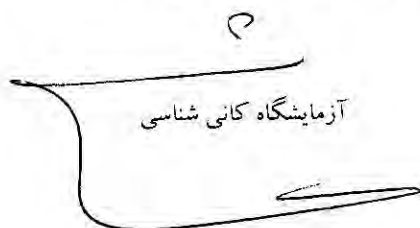 آزمایشگاه کانی شناسی